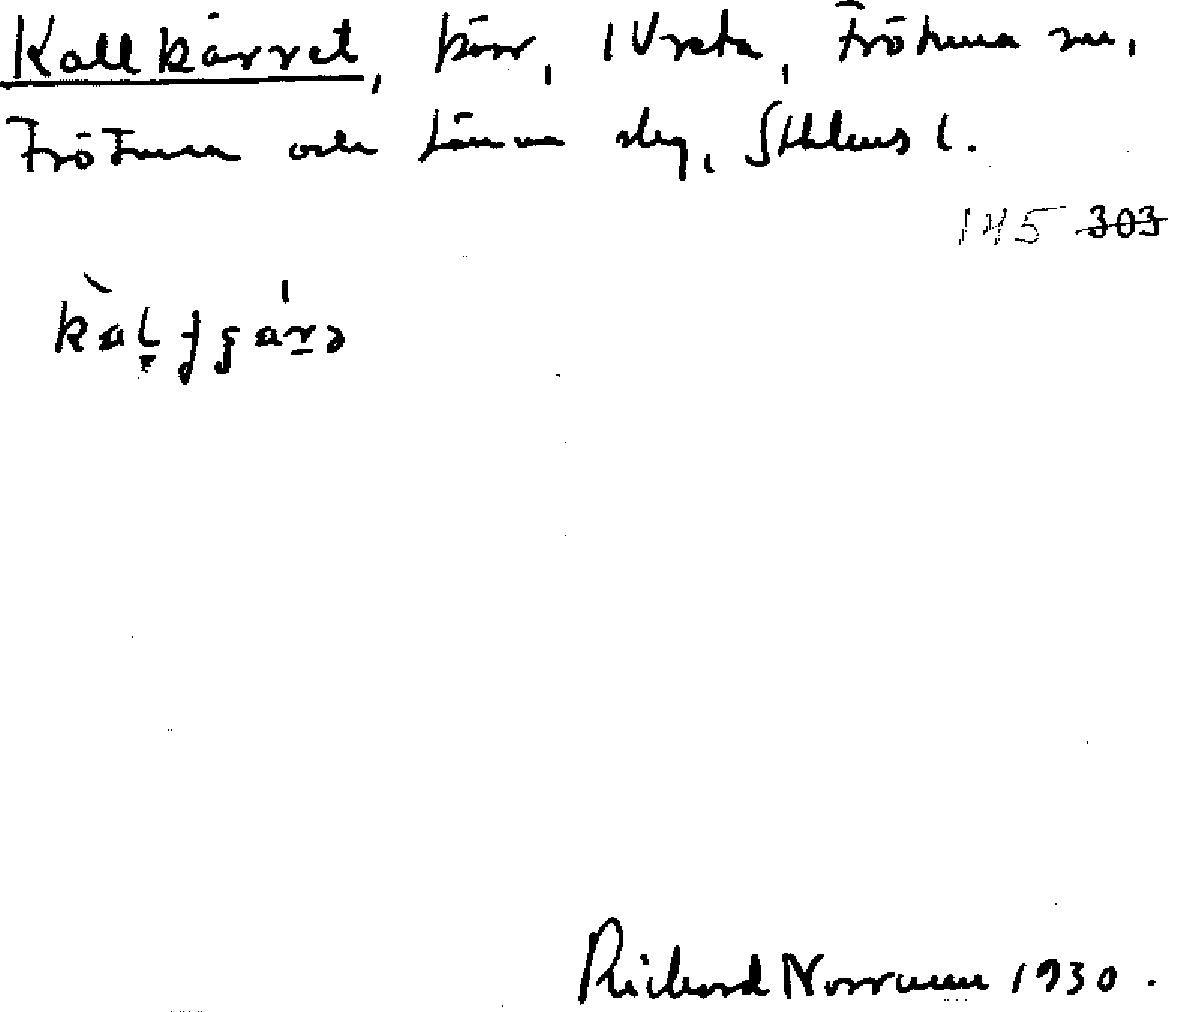 Kallkärret, kärr, 1 Vreta, Frötuna sn,
Frötuna och Länna slg, Sthlms l.
145 303
Richard Norrman 1930.